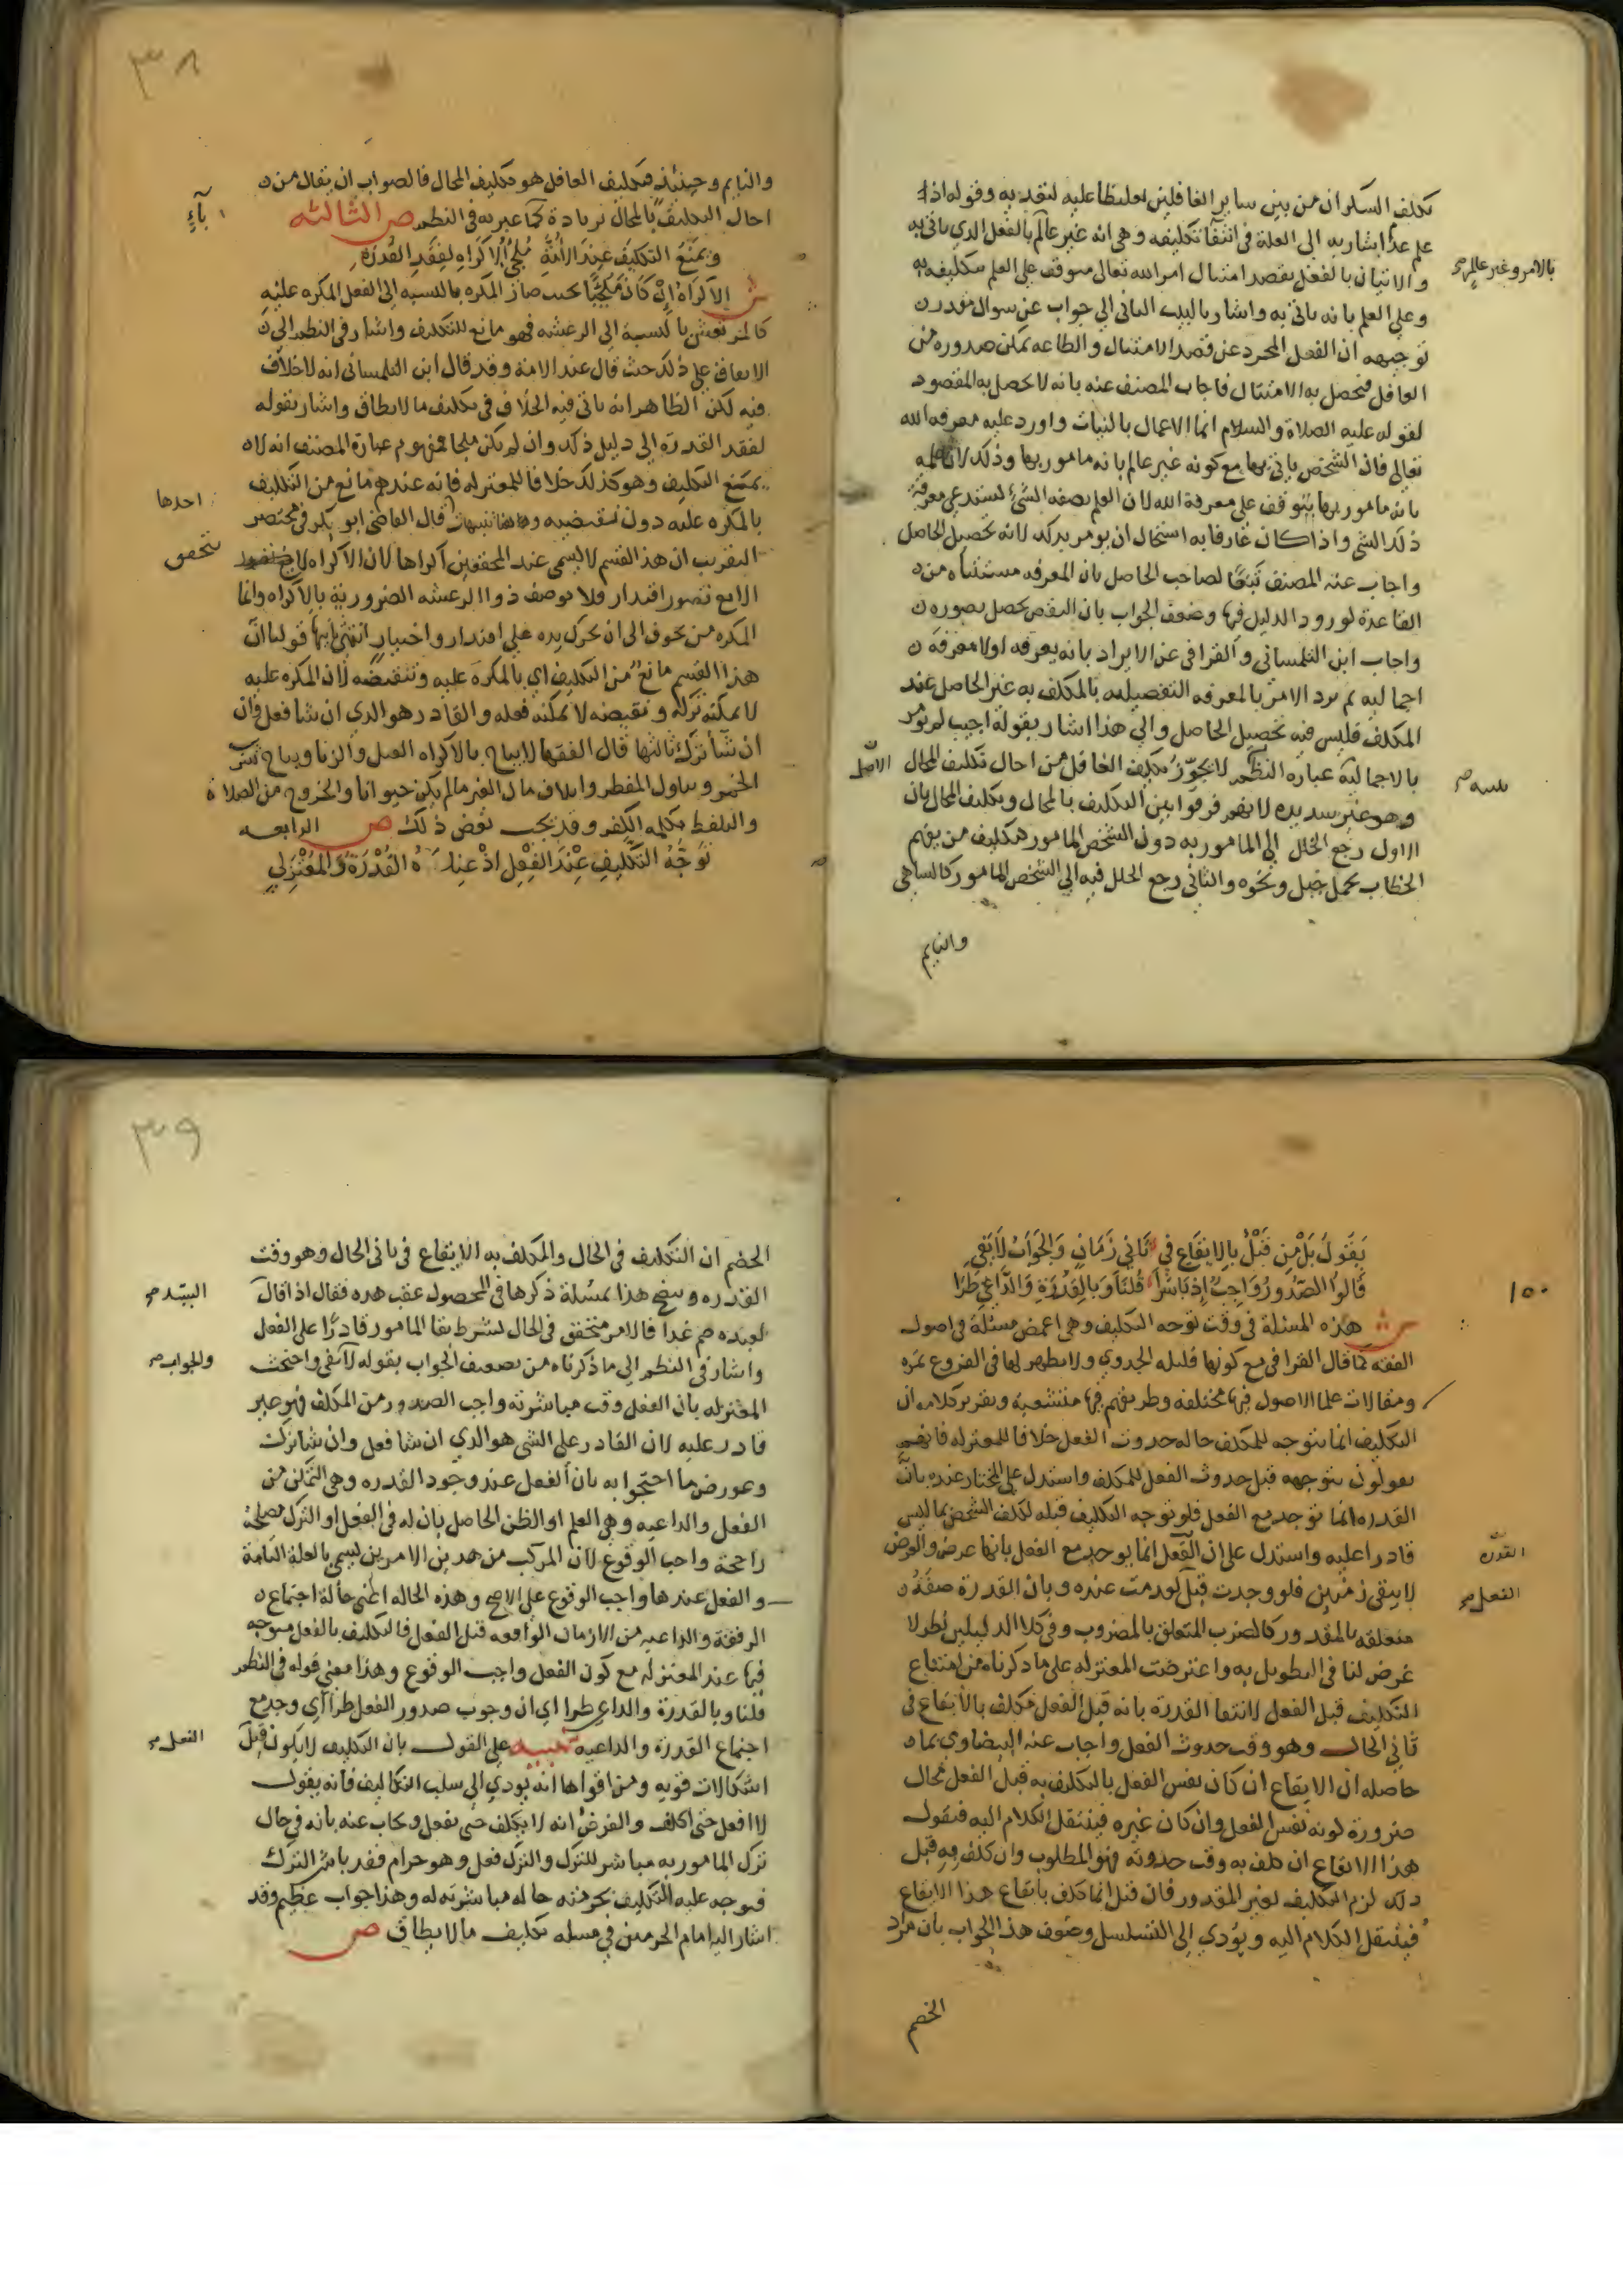 تكليف السكران من بين ساير الغافلين تغليظا عليه لتعديه وقوله اذ لا
علم عذا اشار به الى العلة في انتفا تكليفه وهي انه غير عالم بالفعل الذي ياتي به
بالامر وغير عالم
والاتيان بالفعل بقصد امتثال امر الله تعالى متوقف على العلم بتكليفه به
وعلى العلم بانه ياتي به واشار بالبيت الثاني الى جواب عن سوال مقدر
توجيهه ان الفعل المجرد عن قصد الامتثال والطاعه يمكن صدوره من
الغافل فيحصل به الامتثال فاجاب المصنف عنه بانه لا يحصل به المقصود
لقوله عليه الصلاة والسلام انما الاعمال بالنيات واورد عليه معرفه الله
تعالى فان الشخص ياتي بها مع كونه غير عالم بانه مامور بها وذلك لان علمه
بانه مامور بها يتوقف على معرفة الله لان العلم بصفه الشيء يستدعي معرفة
ذلك الشي واذا كان عارفا به استحال ان يومر بذلك لانه تحصيل الحاصل
واجاب عنه المصنف تبعًا لصاحب الحاصل بان المعرفه مستثناه من
القاعدة لورود الدليل فيها وضعف الجواب بان النقض يحصل بصوره
واجاب ابن التلمساني والقرافي عن الايراد بانه يعرفه اولا معرفة
اجماليه ثم يرد الامر بالمعرفه التفصيليه بالمكلف به غير الحاصل عند
المكلف فليس فيه تحصيل الحاصل والى هذا اشار بقوله اجيب لم يومر
بالاجمالية عبارة النظم لا يجوّز تكليف الغافل من احال تكليف المحال
الاصل
وهو غير سديده لانهم فرقوا بين التكليف بالمحال وتكليف المحال بان
الاول رجع الخلل الى المامور به دون الشخص المامور فتكليف من يفهم
الخطاب بحمل جبل ونحوه والثاني رجع الخلل فيه الى الشخص المامور كالساهي
والنايم
٣٨
والنايم وحينئذ فتكليف الغافل هو تكليف المحال فالصواب ان يقال من
احال التكليف بالمحال بزيادة كما عبر به في النظم ص الثالثه
بآءٍ
ويمنع التكليف عند الأمّةِ مُلجئُ الاكراه لفقد القدرة
ش الاكراه ان كان ملجئًا بحيث صار المكره بالنسبه الى الفعل المكره عليه
كالمرتعش بالنسبة الى الرعشه فهو مانع للتكليف واشار في النظم الى
الاتفاق على ذلك حيث قال عند الامة وقد قال ابن التلمساني انه لا خلاف
فيه لكن الظاهر انه ياتي فيه الخلاف في تكليف ما لا يطاق واشار بقوله
لفقد القدرة الى دليل ذلك وان لم يكن ملجا فمفهوم عبارة المصنف انه لا
يمتنع التكليف وهو كذلك خلافا للمعتزله فانه عندهم مانع من التكليف
احدها
بالمكره عليه دون نقيضه وهاهنا تنبيهات قال القاضي ابو بكر في مختصر
التقريب ان هذا القسم لا يسمى عند المحققين اكراها لان الاكراه لا
يتحقق
الا مع تصور اقتدار فلا يوصف ذوا الرعشه الضرورية بالاكراه وانما
المكره من يخوف الى ان يحرك يده على اقتدار واختيار انتهى ثانيها قولنا ان
هذا القسم مانع من التكليف اي بالمكره عليه ونقيضه لان المكره عليه
لا يمكنه تركه ونقيضه لا يمكنه فعله والقادر هو الذي ان شا فعل وان
ان شآ ترك ثالثها قال الفقها لا يباح بالاكراه القتل والزنا ويباح شرب
الخمر وتناول المفطر واتلاف مال الغير ما لم يكن حيوانا والخروج من الصلاة
والتلفظ بكلمه الكفر وقد يجب بعض ذلك ص الرابعه
توجّهُ التكليف عند الفعل اذ عنده القدرة والمعتزلي
يقول بل من قبل بالايقاع في ثاني زمان والجواب لا يفي
قالوا الصدور واجب اذ باشرا قلنا وبالقدرة والداعي طرا
١٥٠
ش هذه المسئلة في وقت توجه التكليف وهي اغمض مسئلة في اصول
الفقه كما قال القرافي مع كونها قليله الجدوي ولا يظهر لها في الفروع ثمره
ومقالات علما الاصول فيها مختلفه وطريقهم فيها متشعبة وتقرير كلامه ان
التكليف انما يتوجه للمكلف حاله حدوث الفعل خلافا للمعتزله فانهم
يقولون بتوجهه قبل حدوث الفعل للمكلف واستدل على المختار عنده بانّ
القدره انما توجد مع الفعل فلو توجه التكليف قبله لكلف الشخص بما ليس
قادرا عليه واستدل على ان الفعل انما يوجد مع الفعل بانها عرض والعرض
القدرة
لا يبقى زمنين فلو وجدت قبل لعدمت عنده وبان القدرة صفة
الفعل
متعلقه بالمقدور كالضرب المتعلق بالمضروب وفي كلا الدليلين نظر لا
غرض لنا في التطويل به واعترضت المعتزله على ما ذكرناه من امتناع
التكليف قبل الفعل لانتفا القدرة بانه قبل الفعل مكلف بالايقاع في
ثاني الحال وهو وقت حدوث الفعل واجاب عنه البيضاوي بما
حاصله ان الايقاع ان كان نفس الفعل بالتكليف به قبل الفعل محال
ضرورة كونه نفس الفعل وان كان غيره فينتقل الكلام اليه فنقول
هذا الايقاع ان كلف به وقت حدوثه فهو المطلوب وان كلف به قبل
ذلك لزم التكليف لغير المقدور فان قيل انما كلف بايقاع هذا الايقاع
فينتقل الكلام اليه ويؤدي الى التسلسل وضعف هذا الجواب بان مراد
الخصم
٣٩
الخصم ان التكليف في الحال والمكلف به الايقاع في ثاني الحال وهو وقت
القدره ويوضح هذا بمسئلة ذكرها في المحصول عقب هذه فقال اذا قال
السيد
لعبده صم غدا فالامر متحقق في الحال بشرط بقا المامور قادرًا على الفعل
واشار في النظم الى ما ذكرناه من تضعيف الجواب بقوله لا يفي واحتجت
والجواب
المعتزله بان الفعل وقت مباشرته واجب الصدور من المكلف فهو غير
قادر عليه لان القادر على الشي هو الذي ان شا فعل وان شا ترك
وعورض ما احتجوا به بان الفعل عند وجود القدره وهي التمكن من
الفعل والداعيه وهي العلم او الظن الحاصل بان له في الفعل او الترك مصلحة
راجحة واجب الوقوع لان المركب من هذين الامرين يسمى بالعلة التامة
والفعل عندها واجب الوقوع على الاصح وهذه الحاله اعني حالة اجتماع
القدرة والداعيه من الازمان الواقعه قبل الفعل فالتكليف بالفعل متوجه
فيها عند المعتزله مع كون الفعل واجب الوقوع وهذا معني قوله في النظم
قلنا وبالقدرة والداعي طرا اي ان وجوب صدور الفعل طرا اي وجد مع
اجتماع القدرة والداعيه تنبيه على القول بان التكليف لا يكون قبل
الفعل
اشكالات قويه ومن اقواها انه يودي الى سلب التكاليف فانه يقول
لا افعل حتى اكلف والفرض انه لا يكلف حتى يفعل ويجاب عنه بانه في حال
ترك المامور به مباشر للترك والترك فعل وهو حرام فقد باشر الترك
فتوجه عليه التكليف بحرمته حاله مباشرته له وهذا جواب عظيم وقد
اشار اليه امام الحرمين في مسله تكليف ما لا يطاق ص